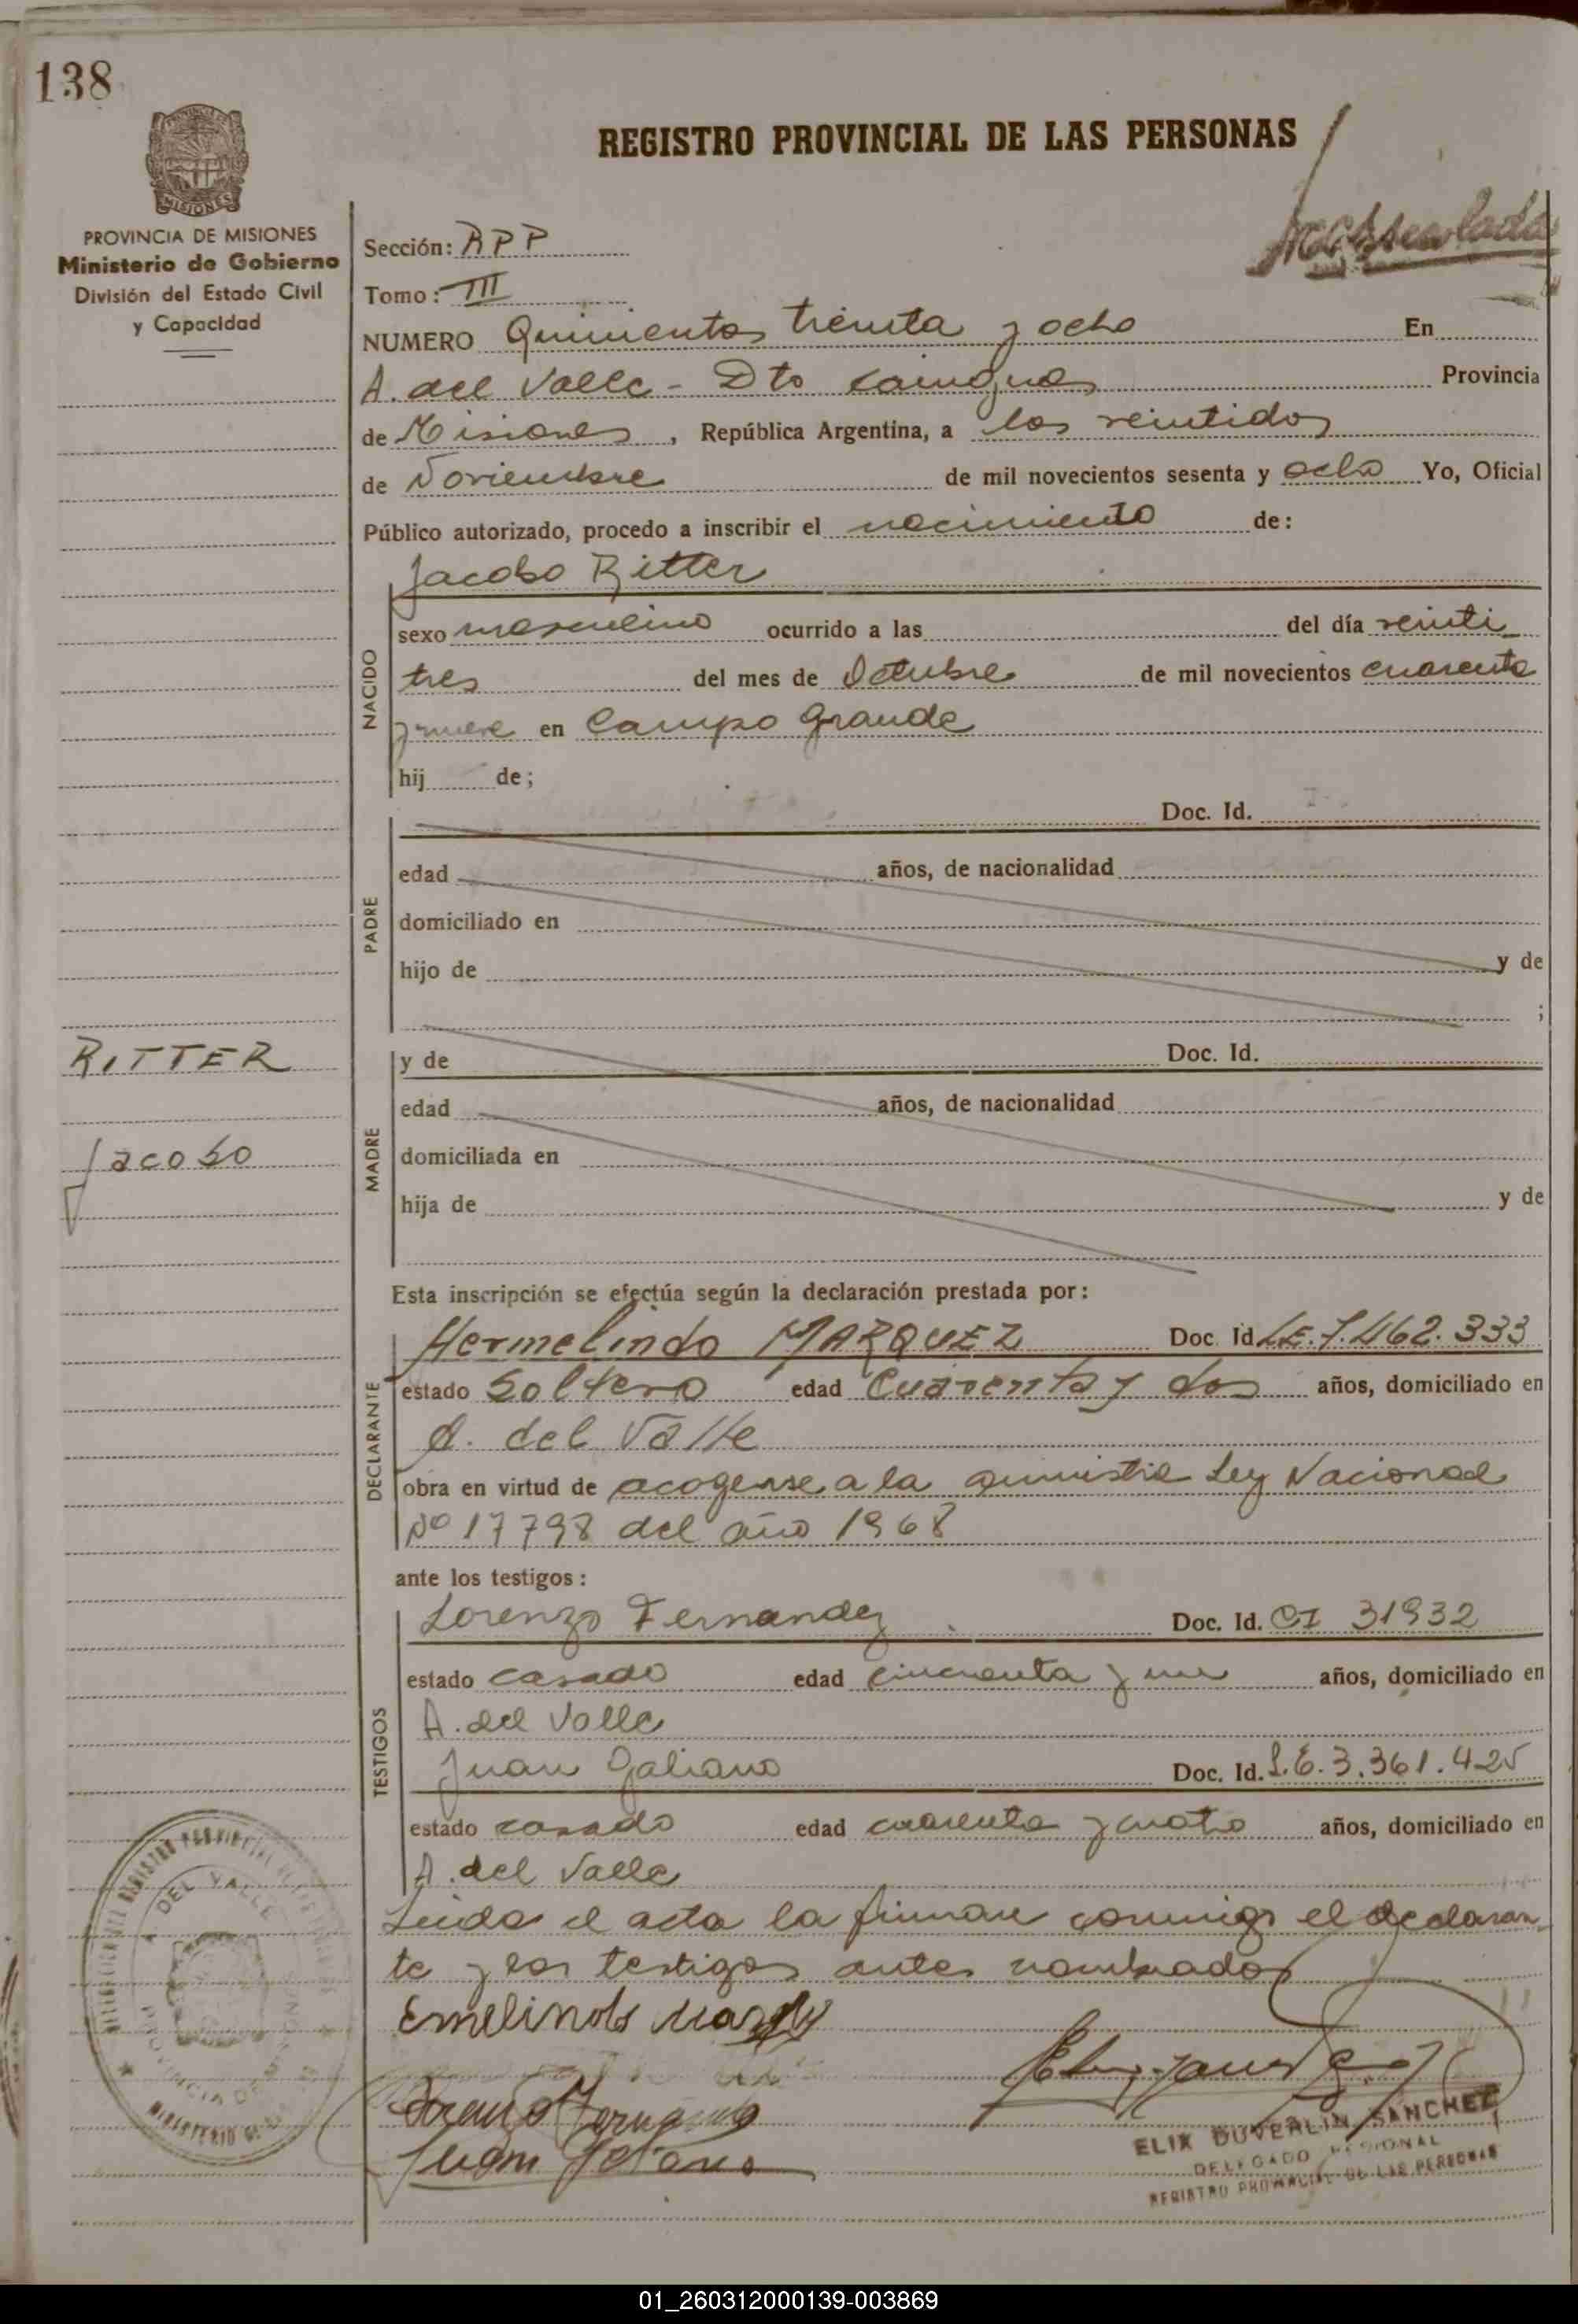 138
REGISTRO PROVINCIAL DE LAS PERSONAS
MISIONES
PROVINCIA DE MISIONES
Ministerio de Gobierno
División del Estado Civil
y Capacidad
Sección: RPP
Tomo: III
NUMERO Quinientos treinta y ocho En
A. del Valle - Dto Cainguas Provincia
de Misiones, República Argentina, a los veintidos
de Noviembre de mil novecientos sesenta y ocho Yo, Oficial
Público autorizado, procedo a inscribir el nacimiento de:
Jacobo Ritter
NACIDO
sexo masculino ocurrido a las del día veinti
tres del mes de Octubre de mil novecientos cuarenta
y nueve en Campo Grande
hij de;
PADRE
Doc. Id.
edad años, de nacionalidad
domiciliado en
hijo de y de
;
RITTER
Jacobo
MADRE
y de Doc. Id.
edad años, de nacionalidad
domiciliada en
hija de y de
Esta inscripción se efectúa según la declaración prestada por:
DECLARANTE
Hermelindo MARQUEZ Doc. Id L.E. 7.462.333
estado Soltero edad Cuarenta y dos años, domiciliado en
A. del Valle
obra en virtud de acogerse a la amnistia Ley Nacional
Nº 17798 del año 1968
ante los testigos:
TESTIGOS
Lorenzo Fernandez Doc. Id. CI 31932
estado casado edad cincuenta y un años, domiciliado en
A. del Valle
Juan Galiano Doc. Id. L.E. 3.361.425
estado casado edad cuarenta y cuatro años, domiciliado en
A. del Valle
Leida el acta la firman conmigo el declaran
te y los testigos antes nombrados
A. DEL VALLE
PROVINCIA DE
MINISTERIO
ELIX DUVERLIN SANCHEZ
DELEGADO REGIONAL
REGISTRO PROVINCIAL DE LAS PERSONAS
01_260312000139-003869